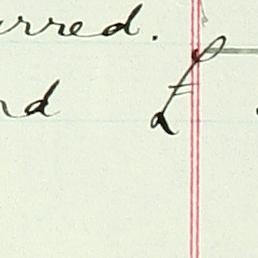 rred.
nd £